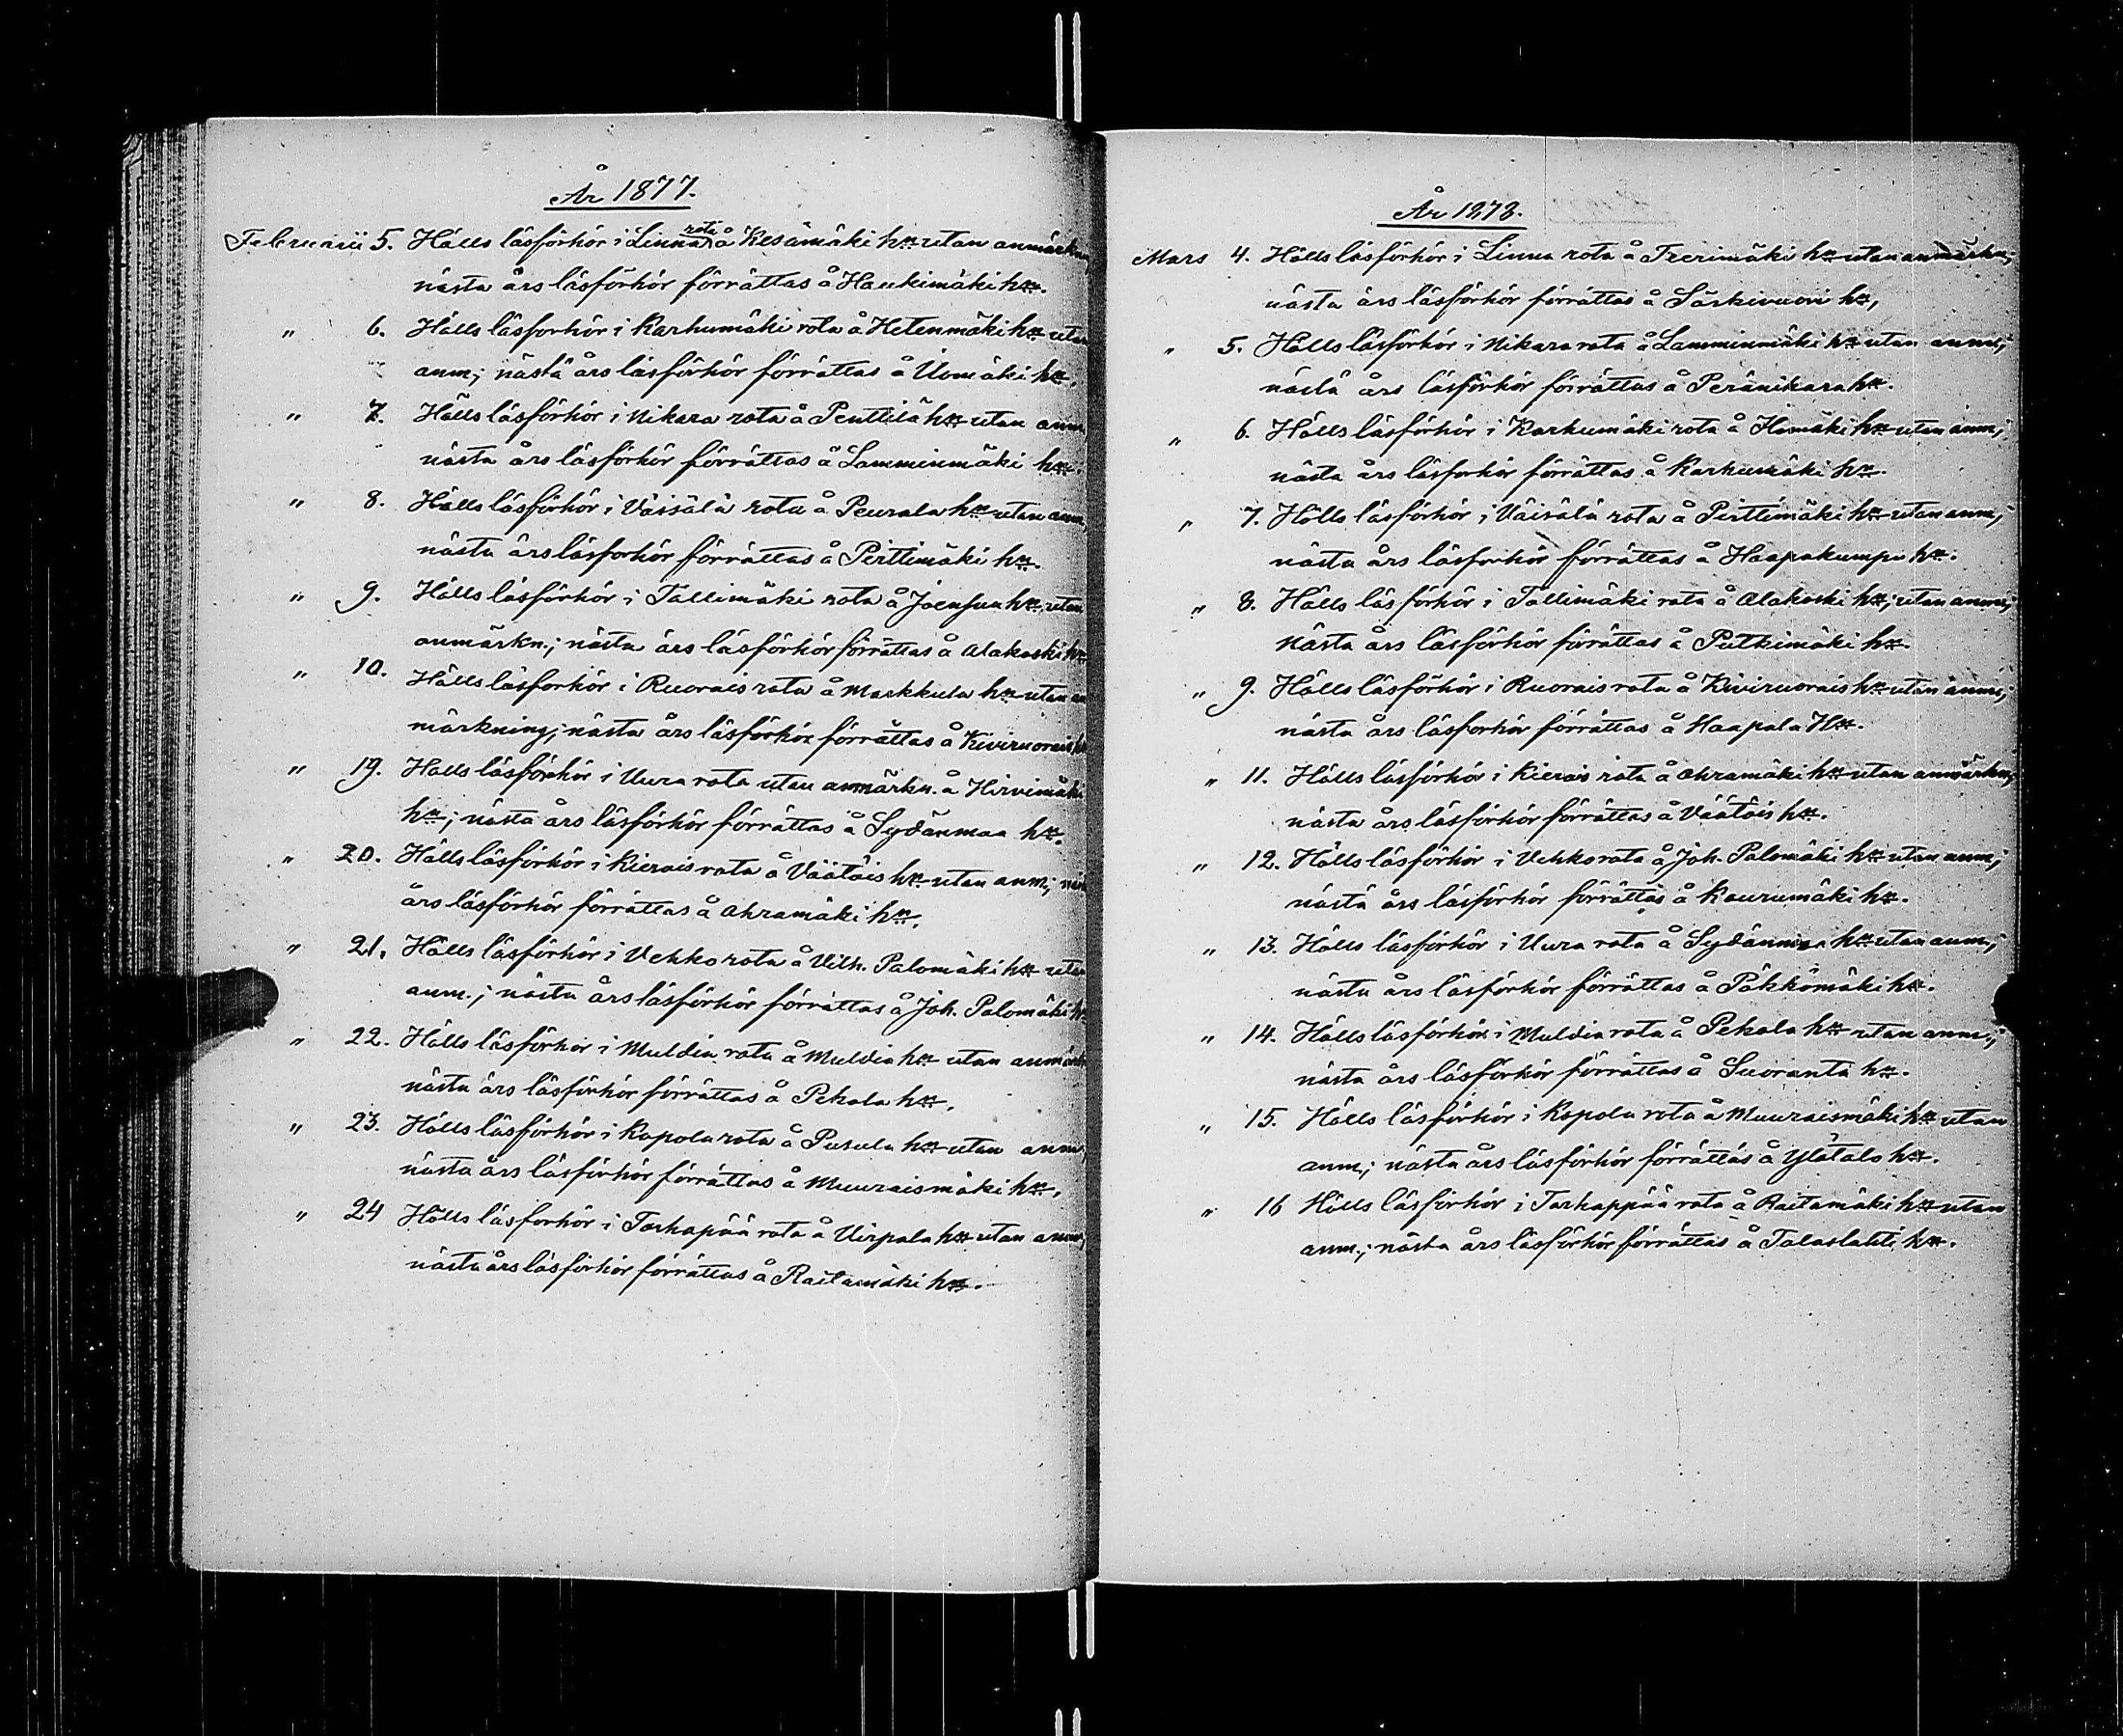 År 1877.
Februarii 5. Hölls läsförhör i Linna rota å Kesämäki hn utan anmärkn,
nästa års läsförhör förrättas å Haukimäki hn.
" 6. Hölls läsförhör i Karhumäki rota å Hetenmäki hn utan
anm; nästa års läsförhör förrättas å hn.
" 7. Hölls läsförhör i Nikara rota å Penttilä hn utan anm,
nästa års läsförhör förrättas å Lamminmäki hn.
" 8. Hölls läsförhör i Väisälä rota å Peurala hn utan anm,
nästa års läsförhör förrättas å Pirttimäki hn.
" 9. Hölls läsförhör i Tallimäki rota å Joensuu hn, utan
anmärkn.; nästa års läsförhör förrättas å Alakoski hn
" 10. Hölls läsförhör i Ruorais rota å Markkula hn utan an
märkning; nästa års läsförhör förrättas å Kiviruorais hn
" 19. Hölls läsförhör i Uura rota utan anmärkn. å Hirvimäki
hn; nästa års läsförhör förrättas å Sydänmaa hn.
" 20. Hölls läsförhör i Kierais rota å Väätäis hn utan anm;
års läsförhör förrättas å Ahramäki hn.
" 21. Hölls läsförhör i Vehko rota å Vilh. Palomäki hn utan
anm.; nästa års läsförhör förrättas å Joh. Palomäki hn
" 22. Hölls läsförhör i Muldia rota å Muldia hn utan anmärkn
nästa års läsförhör förrättas å Pekola hn.
" 23. Hölls läsförhör i Kopola rota å Pusula hn utan anm,
nästa års läsförhör förrättas å Muuraismäki hn.
" 24 Hölls läsförhör i Tarhapää rota å Virpala hn utan anm,
nästa års läsförhör förrättas å Raitamäki hn.
År 1878.
Mars 4. Hölls läsförhör i Linna rota å hn utan anmärkn,
nästa års läsförhör förrättas å Särkivuori hn,
" 5. Hölls läsförhör i Nikara rota å Lamminmäki hn utan anm;
nästa års läsförhör förrättas å Peränikara hn.
" 6. Hölls läsförhör i Karhumäki rota å hn utan anm;
nästa års läsförhör förrättas å Karhumäki hn.
" 7. Hölls läsförhör i Väisälä rota å Pirttimäki hn utan anm;
nästa års läsförhör förrättas å Haapakumpu hn.
" 8. Hölls läsförhör i Tallimäki rota å Alakoski hn; utan anm;
nästa års läsförhör förrättas å Putkimäki hn.
" 9. Hölls läsförhör i Ruorais rota å Kiviruorais hn utan anm;
nästa års läsförhör förrättas å Haapala Hn.
" 11. Hölls läsförhör i Kierais rota å Ahramäki hn utan anmärkn;
nästa års läsförhör förrättas å Väätäis hn.
" 12. Hölls läsförhör i Vehko rota å Joh. Palomäki hn utan anm;
nästa års läsförhör förrättas å Kaurumäki hn.
" 13. Hölls läsförhör i Uura rota å Sydänmaa hn utan anm;
nästa års läsförhör förrättas å Päkkömäki hn.
" 14. Hölls läsförhör i Muldia rota å Pekola hn utan anm.;
nästa års läsförhör förrättas å Suoranta hn.
" 15. Hölls läsförhör i Kopola rota å Muuraismäki hn utan
anm; nästa års läsförhör förrättas å Ylätalo hn.
" 16 Hölls läsförhör i Tarhappää rota å Raitamäki hn utan
anm.; nästa års läsförhör förrättas å Talaslahti hn.